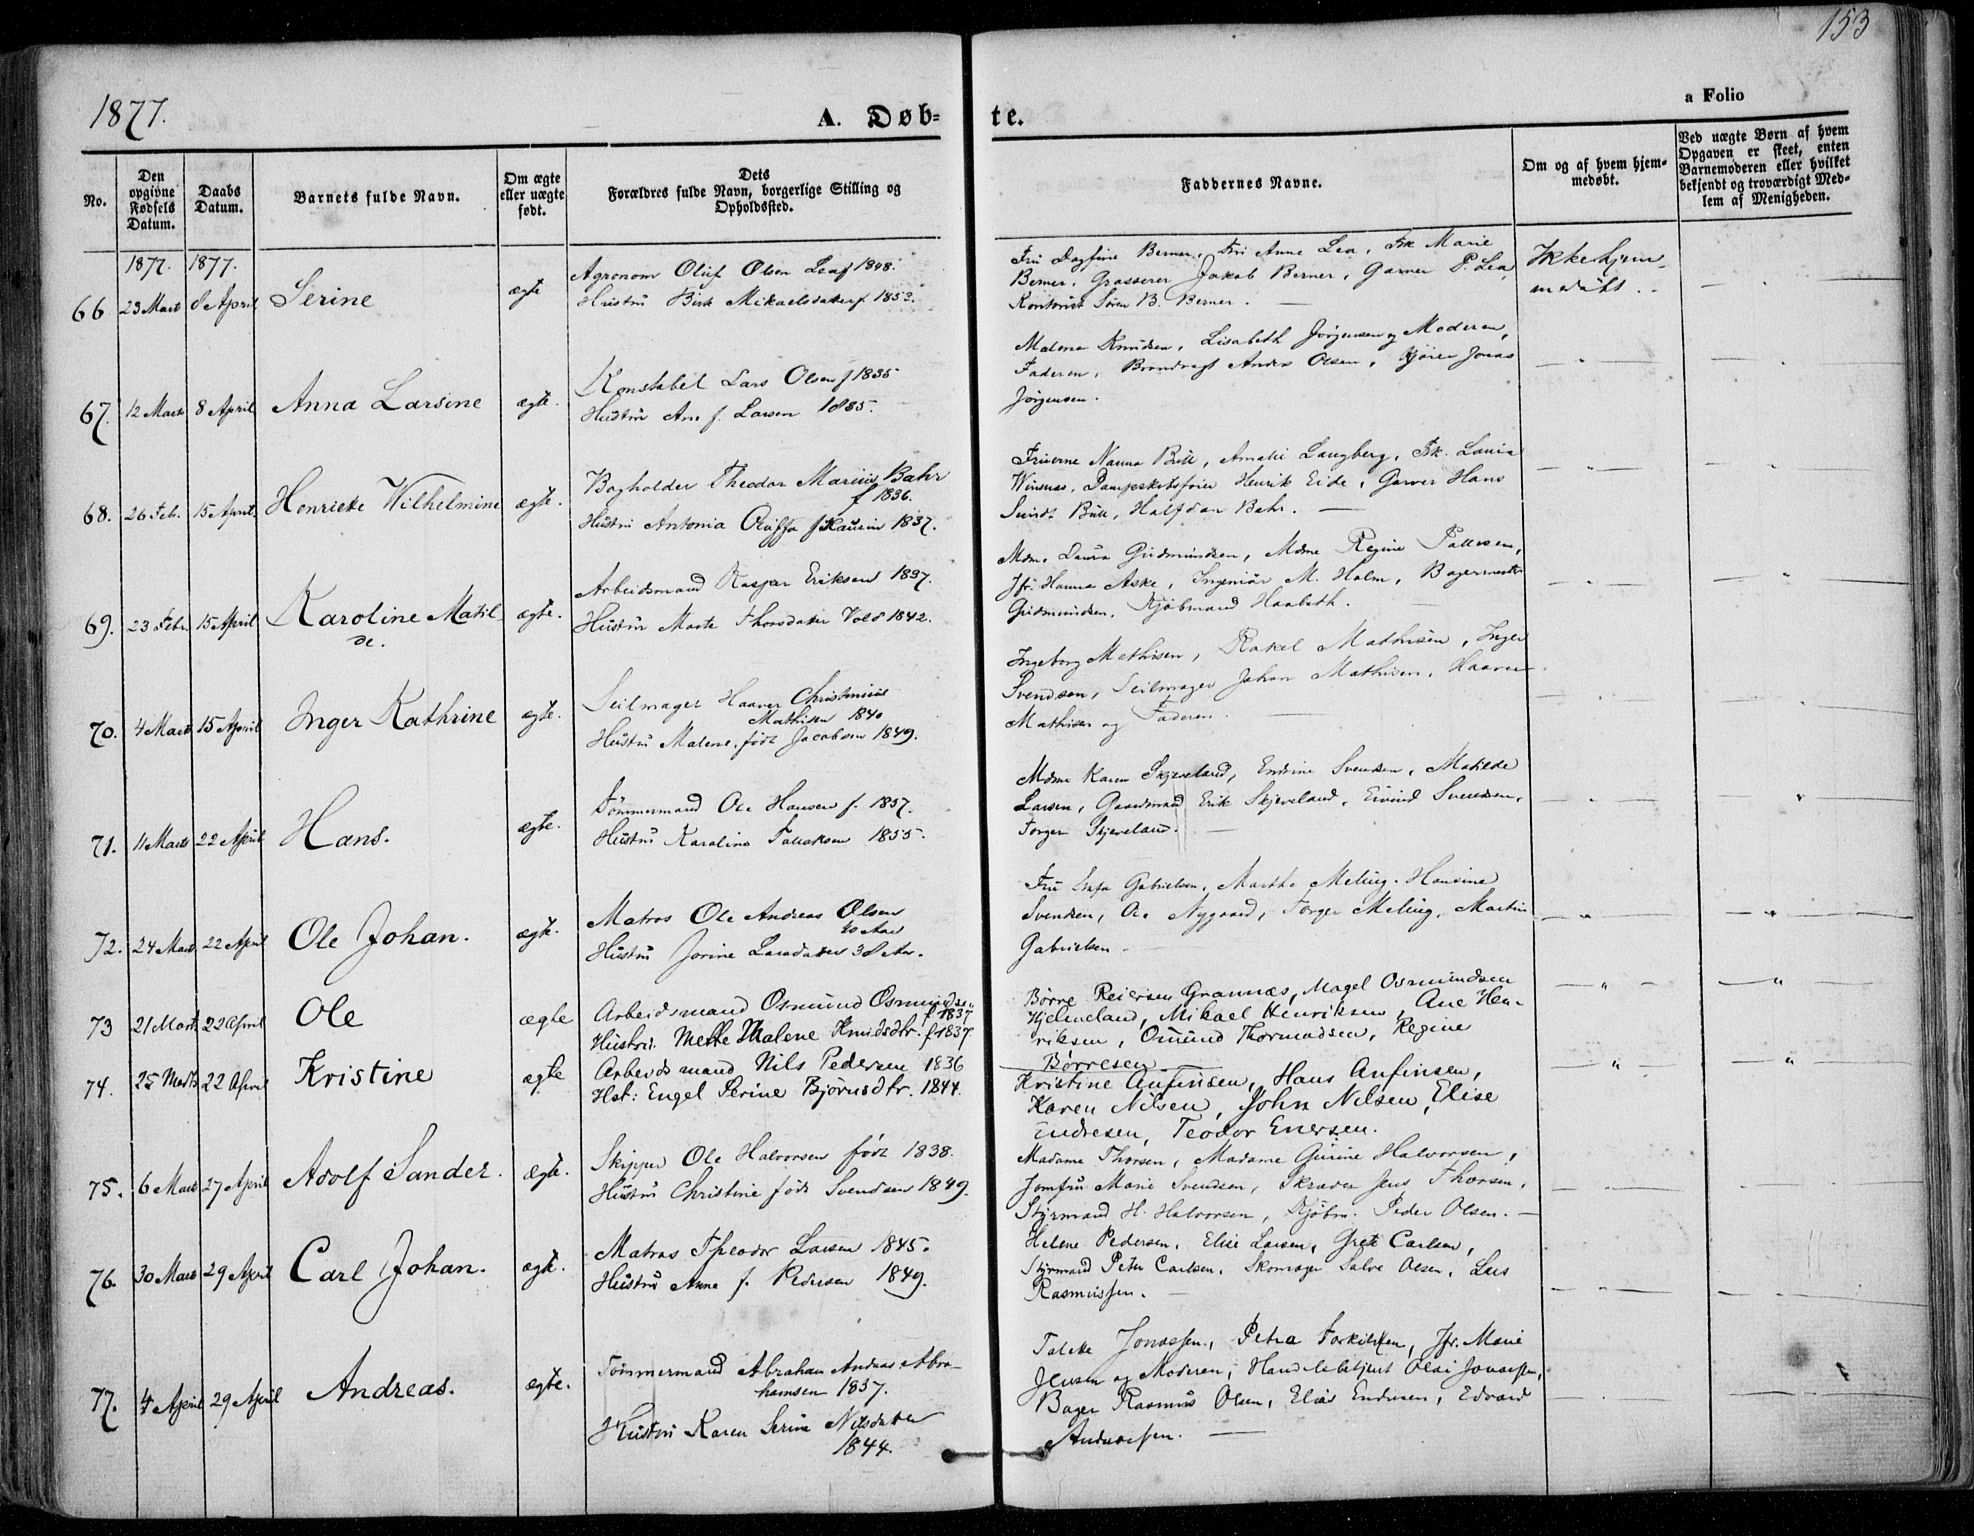 153
1877.
A. Døb-
te.
a Folio
No.
Den
opgivne
Fødsels
Datum.
Daabs
Datum.
Barnets fulde Navn.
Om ægte
eller uægte
født.
Dets
Forældres fulde Navn, borgerlige Stilling og
Opholdssted.
Faddernes Navne.
Om og af hvem hjem-
medøbt.
Ved uægte Børn af hvem
Opgaven er skeet, enten
Barnemoderen eller hvilket
bekjendt og troværdigt Med-
lem af Menigheden.
1877. 1877.
66 23 Marts 8de April Serine ægte
Agronom Oluf Olsen Lea f 1848.
Hustru Birte Mikaelsdatter f 1852.
Fru Dagfine Berner, Fru Anne Lea, Frk Marie
Berner, Grosserer Jakob Berner, Garver P. Lea,
Kontorist Søren B. Berner. —
Ikke hjem-
medøbt.
67. 12 Marts 8 April Anna Larsine ægte.
Konstabel Lars Olsen f 1835
Hustru Ane f. Larsen 1835.
Malene Knudsen, Lisabeth Jörgensen og Moderen,
Faderen, Brandvagt Anders Olsen, Jonas
Jörgensen.
68. 26 Feb. 15 April. Henrieke Wilhelmine ægte.
Bogholder Theodor Marius Bahr
f 1836.
Hustru Antonia Oluffa f 1837.
Fruerne Nanna Bull, Amalie Langberg, Frk. Laura
Winsnes, Dampskibsförer Henrik Eide, Garver Hans
Bull, Halfdan Bahr. —
69. 23 Febr. 15 April Karoline Matil-
de. ægte.
Arbeidsmand Kasper Eriksen 1837.
Hustru Marte Thorsdatter Vold 1842.
Mdm. Laura Gudmundsen, Mdme Regine Pallesen,
Jfr. Hanna Aske, Ingeniör M. Holm, Bagermester
Gudmundsen, Kjöbmand Haabeth. —
70. 4 Marts 15 April Inger Kathrine ægte.
Seilmager Haaver Christinius
Mathisen 1840
Hustru Malene, födt Jacobsen 1849.
Ingeborg Mathisen, Rakel Mathisen, Inger
Svendsen, Seilmager Johan Mathisen, Haaver
Mathisen og Faderen. —
71. 11 Marts 22 April Hans. ægte.
Tömmermand Ole Hansen f. 1857.
Hustru Karoline Tallaksen 1855.
Mdme Karen Skjeveland, Endrine Svendsen, Matilde
Larsen, Gaardmand Erik Skjeveland, Eivind Svendsen,
Torger Skjeveland. —
72. 24 Marts 22 April Ole Johan. ægte.
Matros Ole Andreas Olsen
40 Aar
Hustru Jorine Larsdatter 38 Aar.
Fru Gabrielsen, Marthe Meling, Hansine
Svendsen, Ole Nygaard, Torger Meling, Martin
Gabrielsen —
73 21 Marts 22 April Ole ægte
Arbeidsmand Osmund Osmundsen
f 1837
Hustru: Mette Malene Knudsdtr. f 1837
Børre Reiersen Grannæs, Magel Osmundsen
Hjelmeland, Mikael Henriksen, Ane Hen-
riksen, Omund Thormodsen, Regine
Børresen
74. 25 Marts 22 April Kristine ægte
Arbeidsmand Nils Pedersen 1836
Hst: Engel Serine Bjørnsdtr. 1844.
Kristine Anfinsen, Hans Anfinsen,
Karen Nilsen, John Nilsen, Elise
Endresen, Teodor Enersen.
75. 6 Marts 27 April Adolf Sander. ægte.
Skipper Ole Halvorsen födt 1838.
Hustru Christine född Svendsen 1849.
Madame Thorsen, Madame Gurine Halvorsen,
Jomfru Marie Svendsen, Skræder Jens Thorsen,
Styrmand H. Halvorsen, Kjöbm. Peder Olsen. —
76. 30 Marts 29 April Carl Johan. ægte.
Matros Theodor Larsen 1845.
Hustru Anna f. Pedersen 1849.
Helene Pedersen, Elise Larsen, Grete Carlsen,
Styrmand Peter Carlsen, Skomager Salve Olsen, Lars
Rasmussen. —
77. 4 April 29 April Andreas. ægte.
Tömmermand Abraham Andreas Abra-
hamsen 1837.
Hustru Karen Serine Nilsdatter
1844.
Talette Jonassen, Petra Torkildsen, Jfr. Marie
Jensen og Moderen, Handelsbetjent Olai Jonassen,
Bager Rasmus Olsen, Elias Endresen, Edvard
Andreassen. —